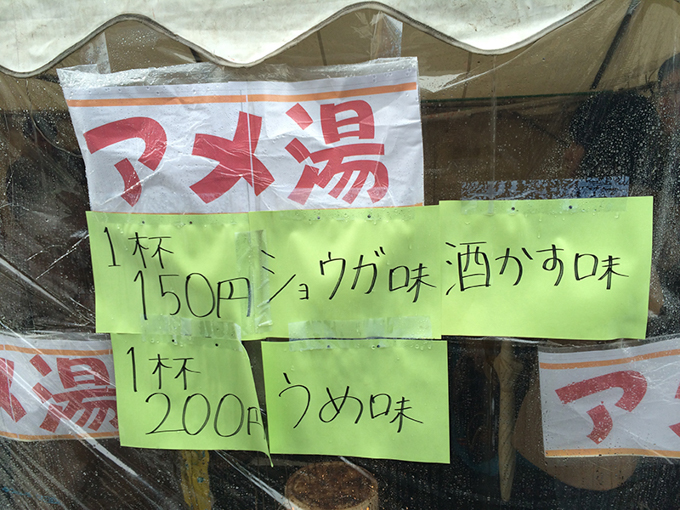 アメ湯
1杯
150円
ショウガ味
酒かす味
1杯
200円
うめ味
湯
ア